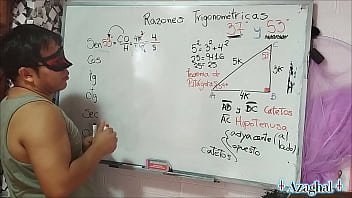 Razones Trigonometricas
37° y 53°
Sen53°= CO/H = 4K/5K = 4/5
Cos
Tg
Ctg
Sec
5²=3²+4²
25=9+16
25=25
Teorema de
Pitágoras
5K
3K
4K
C
A
B
53°
AB y BC Catetos
AC Hipotenusa
Catetos
adyacente (al lado)
opuesto
Azaghal